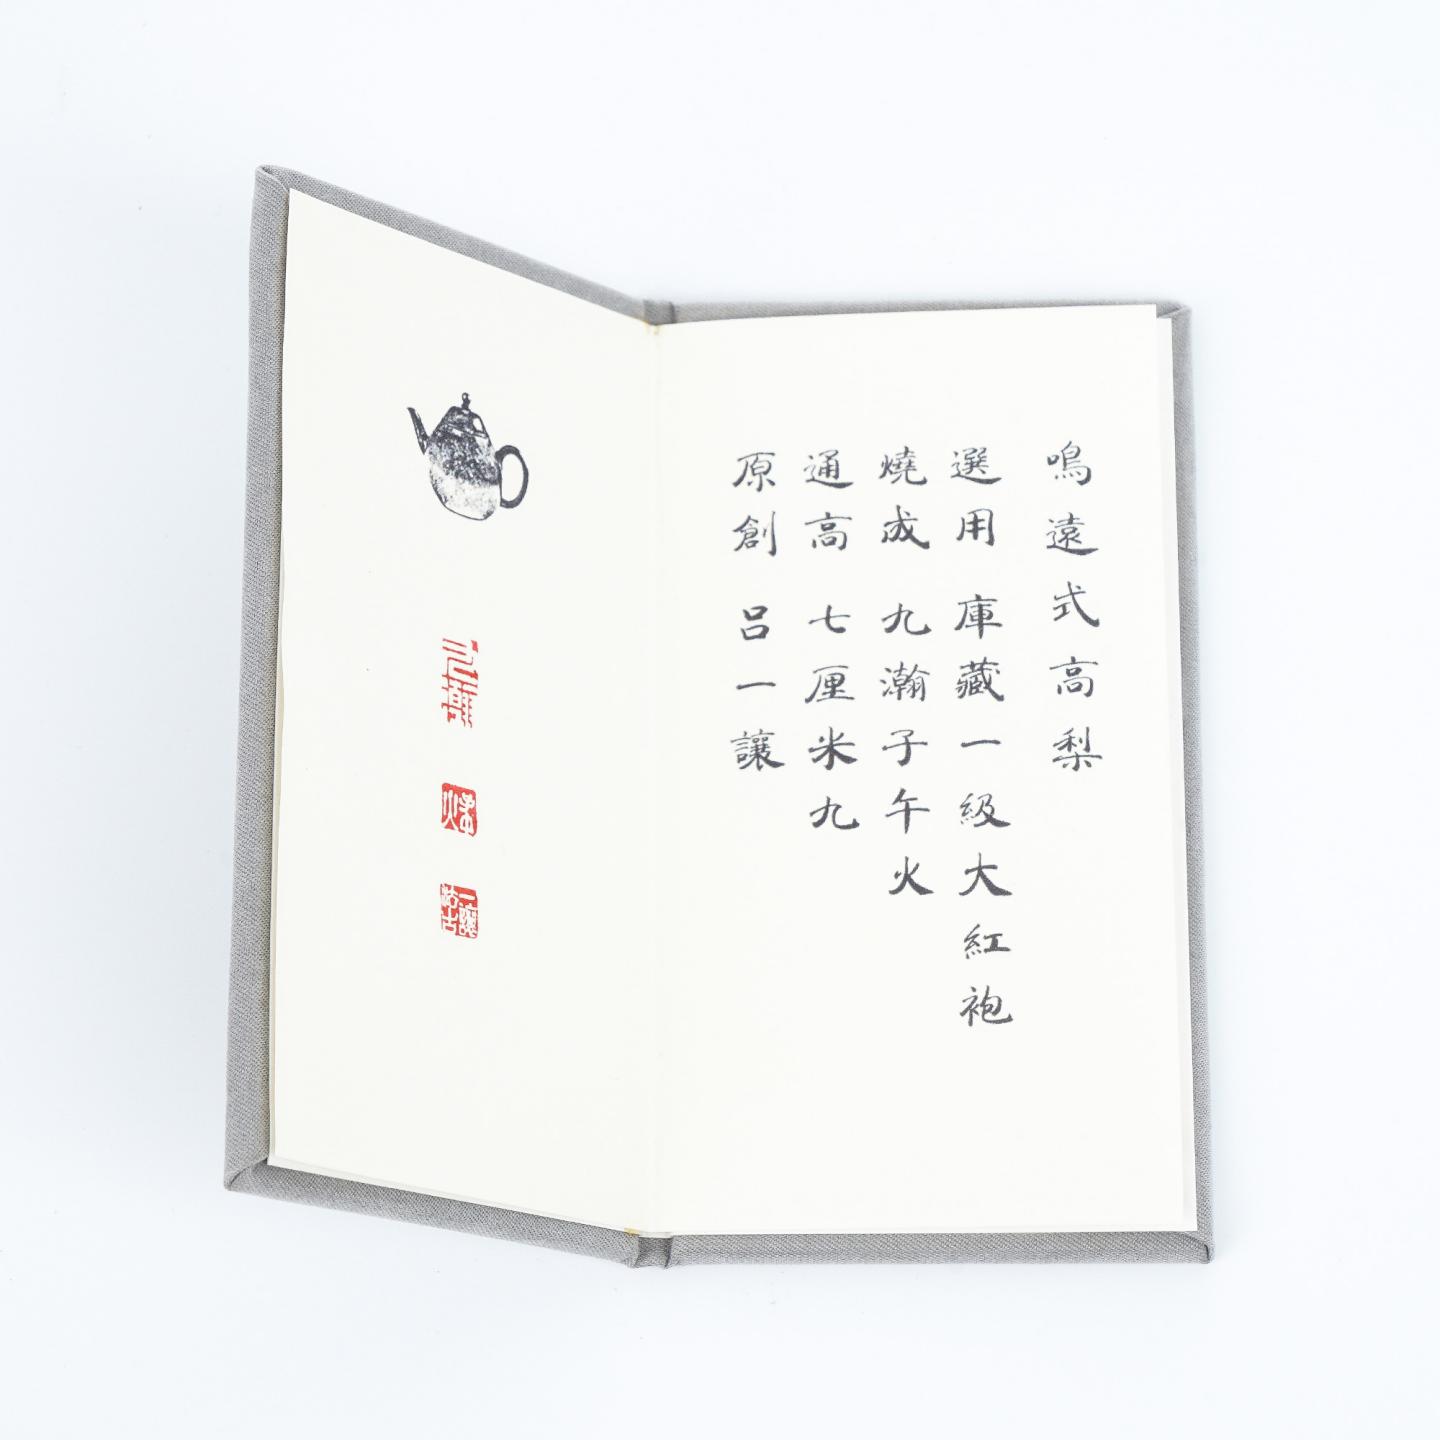 鳴遠式高梨
選用 庫藏一級大紅袍
燒成 九瀚子午火
通高 七厘米九
原創 呂一讓
九瀚